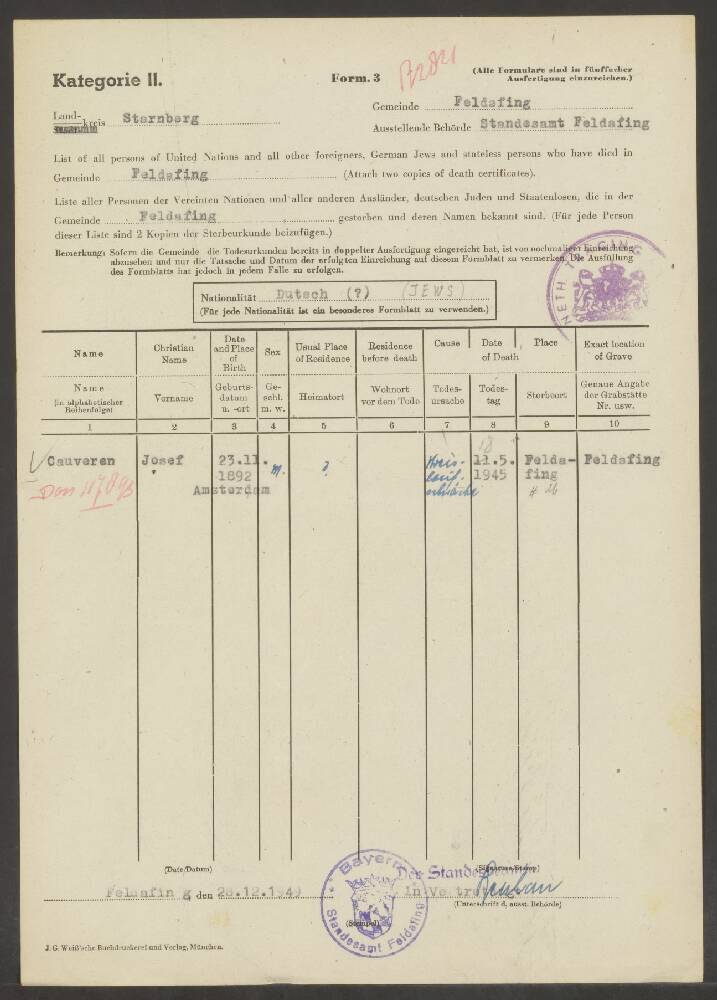 Kategorie II.
Form. 3
(Alle Formulare sind in fünffacher
Ausfertigung einzureichen.)
Land-
kreis Starnberg
Gemeinde Feldafing
Ausstellende Behörde Standesamt Feldafing
List of all persons of United Nations and all other foreigners, German Jews and stateless persons who have died in
Gemeinde Feldafing (Attach two copies of death certificates).
Liste aller Personen der Vereinten Nationen und aller anderen Ausländer, deutschen Juden und Staatenlosen, die in der
Gemeinde Feldafing gestorben und deren Namen bekannt sind. (Für jede Person
dieser Liste sind 2 Kopien der Sterbeurkunde beizufügen.)
Bemerkung: Sofern die Gemeinde die Todesurkunden bereits in doppelter Ausfertigung eingereicht hat, ist von nochmaliger Einreichung
abzusehen und nur die Tatsache und Datum der erfolgten Einreichung auf diesem Formblatt zu vermerken. Die Ausfüllung
des Formblatts hat jedoch in jedem Falle zu erfolgen.
NETH
Nationalität Dutsch (?) (JEWS)
(Für jede Nationalität ist ein besonderes Formblatt zu verwenden.)
Name Christian Name Date and Place of Birth Sex Usual Place of Residence Residence before death Cause Date Place of Death Exact location of Grave
Name (in alphabetischer Reihenfolge) Vorname Geburts-datum u. -ort Ge-schl. m. w. Heimatort Wohnort vor dem Tode Todes-ursache Todes-tag Sterbeort Genaue Angabe der Grabstätte Nr. usw.
1 2 3 4 5 6 7 8 9 10
18
Cauveren Josef 23.11. m. ? Kreis- 11.5. Felda- Feldafing
1892 lauf- 1945 fing
Amsterdam schwäche # 26
(Date/Datum)
(Signature/Stamp)
Der Standesbeamte
Feldafing den 28.12.1949
In Vertretung
(Unterschrift d. ausst. Behörde)
(Stempel)
Bayern
Standesamt Feldafing
J. G. Weiß'sche Buchdruckerei und Verlag, München.